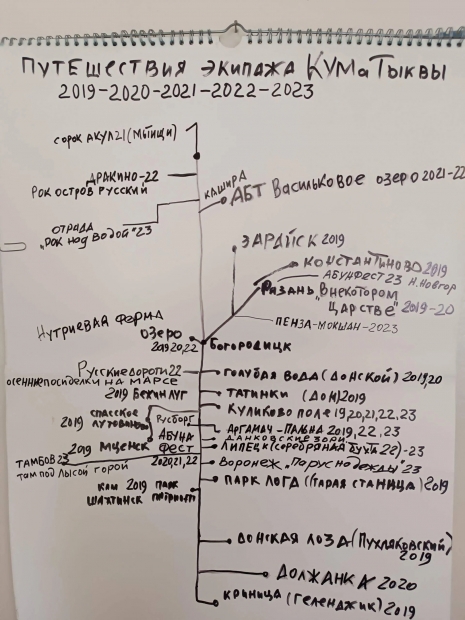 ПУТЕШЕСТВИЯ ЭКИПАЖА КУМаТЫКВЫ
2019-2020-2021-2022-2023
СОРОК АКУЛ 21 (МЫТИЩИ)
ДРАКИНО-22
РОК ОСТРОВ РУССКИЙ
КАШИРА
АБТ ВАСИЛЬКОВОЕ ОЗЕРО 2021-22
ОТРАДА
"РОК НАД ВОДОЙ" 23
ЗАРАЙСК 2019
КОНСТАНТИНОВО 2019
АБУНФЕСТ 23 Н.НОВГОР
РЯЗАНЬ "В НЕКОТОРОМ
ЦАРСТВЕ" 2019-20
ПЕНЗА-МОКШАН-2023
НУТРИЕВАЯ ФЕРМА
ОЗЕРО
2019 20,22
БОГОРОДИЦК
РУССКИЕ ДОРОГИ 22
ГОЛУБАЯ ВОДА (ДОНСКОЙ) 2019,20
ОСЕННИЕ ПОСИДЕЛКИ НА МАРСЕ
2019 БЕЖИН ЛУГ
ТАТИНКИ (ДОН) 2019
СПАССКОЕ
ЛУТОВИНОВО
2019
РУСБОРГ
КУЛИКОВО ПОЛЕ 19,20,21,22,23
АРГАМАЧ-ПАЛЬНА 2019, 22, 23
2019 МЦЕНСК
АБУНА
ФЕСТ
2020,21,22
ДАНКОВСКИЕ ЗОРИ
ЛИПЕЦК (СЕРЕБРЯНАЯ БУХТА 22)-23
ТАМБОВ 23
ТАМ ПОД ЛЫСОЙ ГОРОЙ
ВОРОНЕЖ "ПАРУС НАДЕЖДЫ" 23
2019 ПАРК
ШАХТИНСК ПАТРИОТ
ПАРК ЛОГА (СТАРАЯ СТАНИЦА) 2019
ДОНСКАЯ ЛОЗА (ПУХЛЯКОВСКИЙ)
2019
ДОЛЖАНКА 2020
КРИНИЦА (ГЕЛЕНДЖИК) 2019